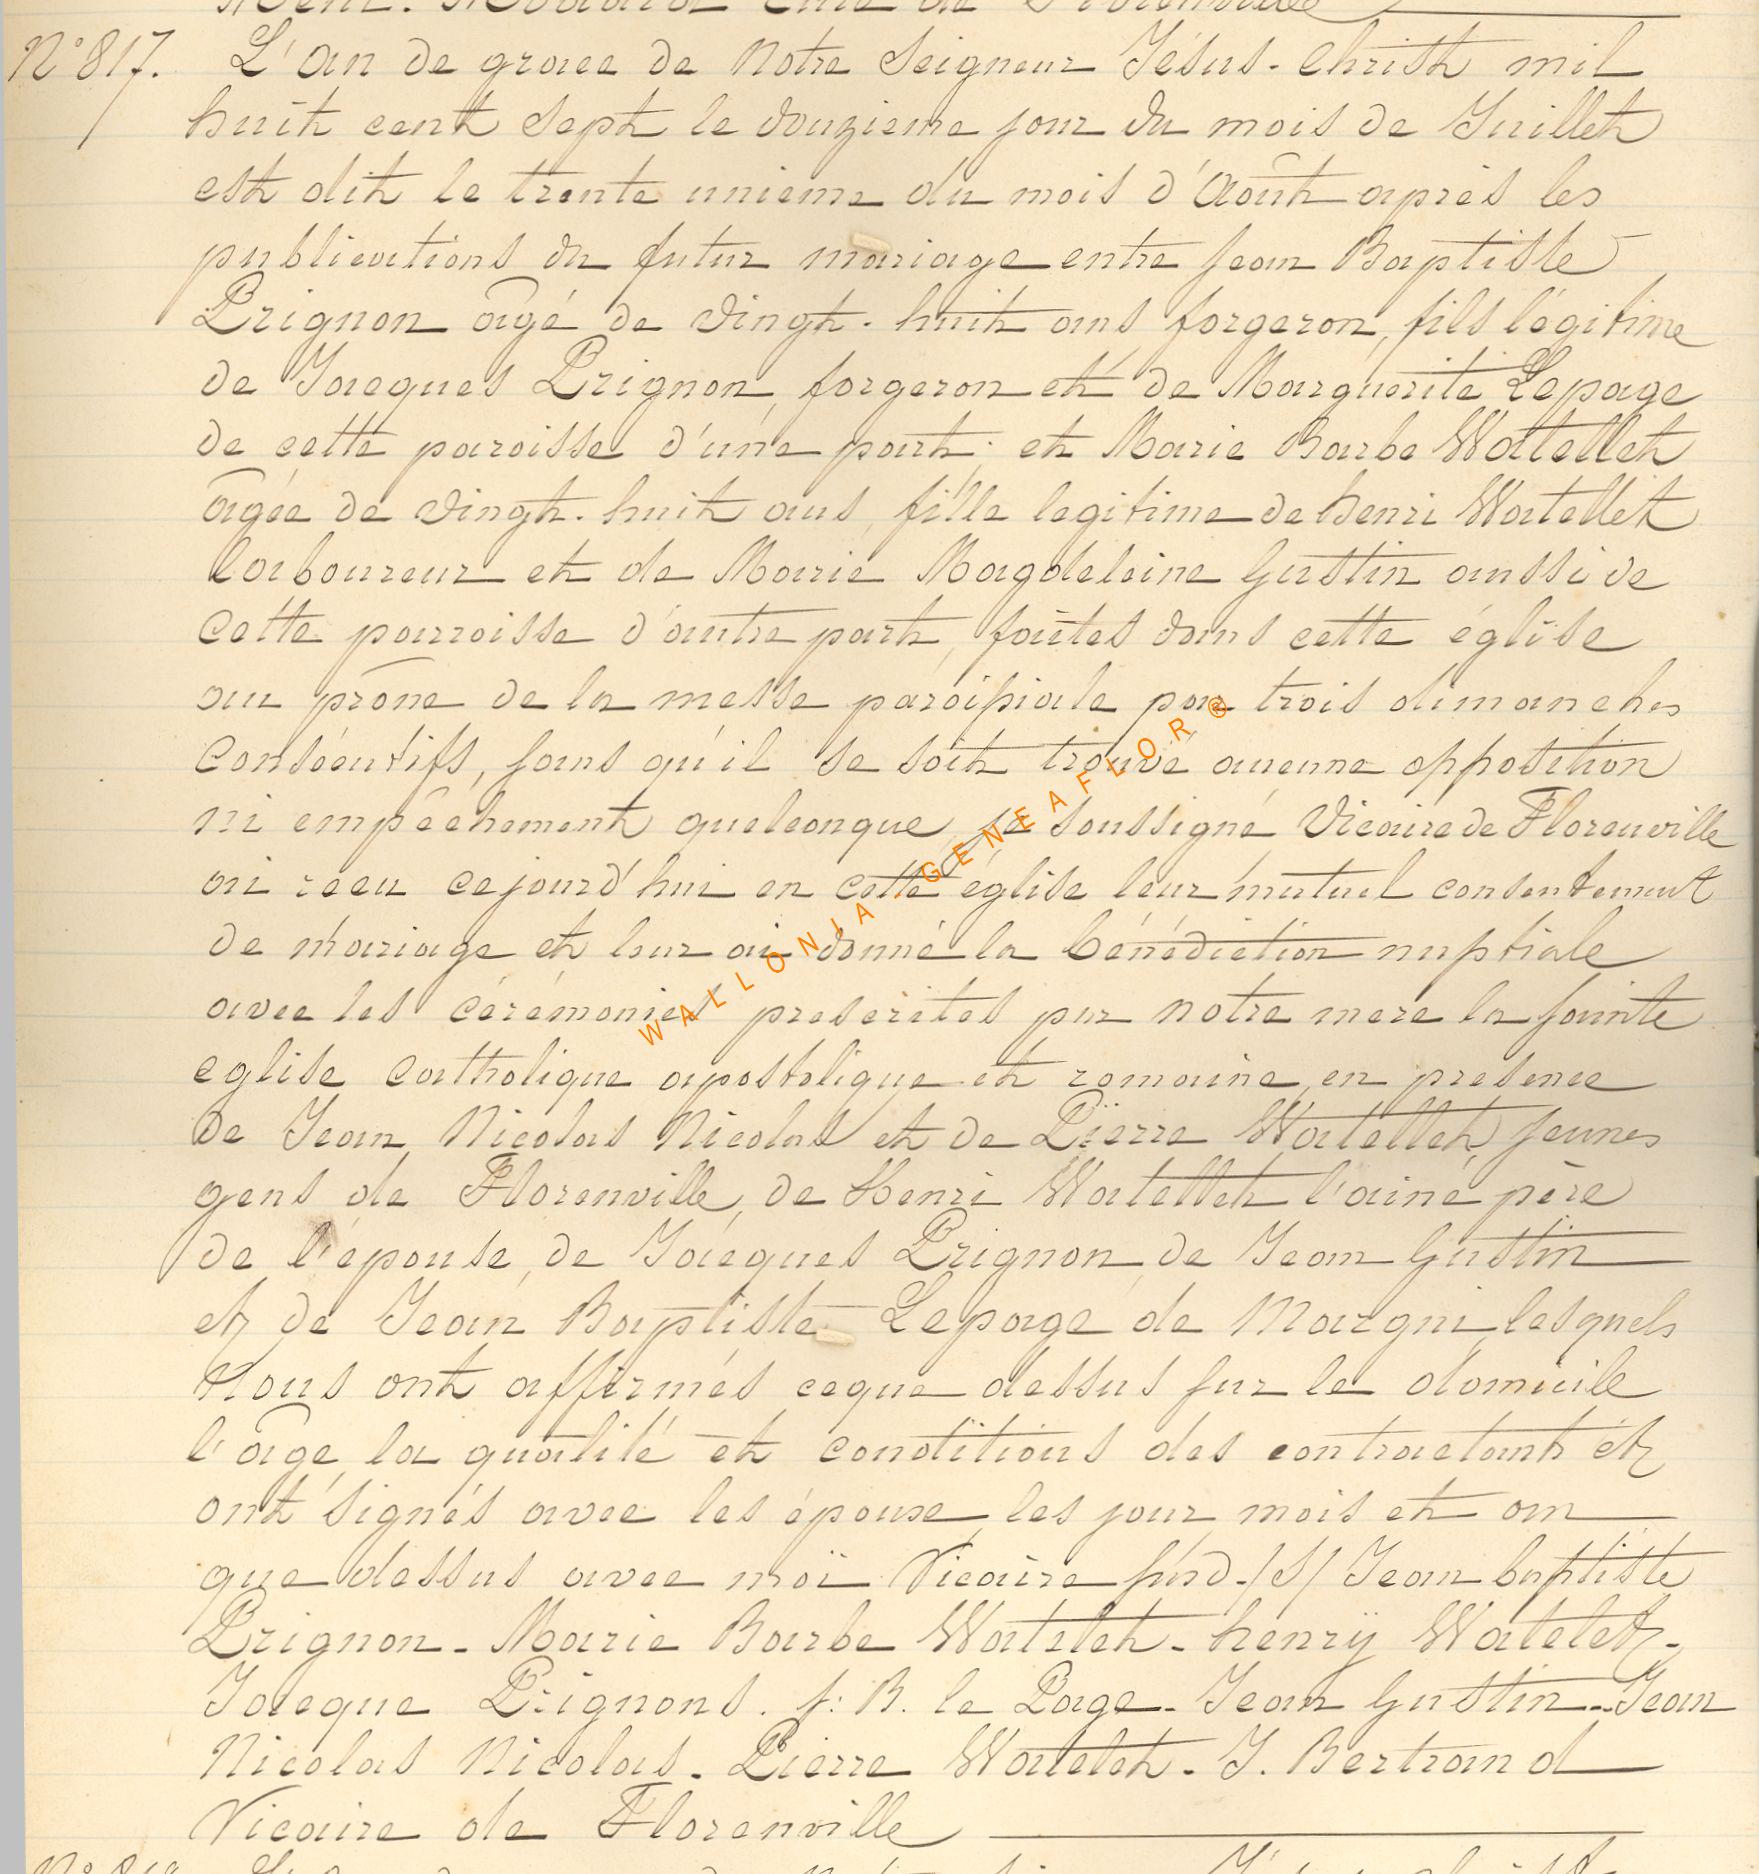 N° 817. L'an de grace de Notre Seigneur Jésus-Christ mil
huit cent Sept le douzieme jour du mois de Juillet
est dit le trente unieme du mois d'Août après les
publications du futur mariage entre Jean Baptiste
Prignon âgé de vingt-huit ans, forgeron, fils légitime
de Jacques Prignon, forgeron et de Marguerite Lepage
de cette paroisse d'une part; et Marie Barbe Watellet
âgée de vingt-huit ans, fille legitime de henri Watellet
laboureur et de Marie Magdeleine Gustin aussi de
cette parroisse d'autre part, faites dans cette église
au prône de la messe paroissiale par trois dimanches
Consécutifs, sans qu'il se soit trouvé aucune opposition
ni empêchement quelconque, je soussigné Vicaire de Florenville
ai recu cejourd'hui en cette église leur mutuel consentement
de mariage et leur ai donné la bénédiction nuptiale
avec les cérémonies prescrites par notre mere la sainte
eglise catholique apostolique et romaine, en presence
de Jean Nicolas Nicolas et de Pierre Watellet, jeunes
gens de Florenville, de Henri Watellet l'ainé père
de l'épouse, de Jacques Prignon, de Jean Gustin
et de Jean Baptiste Lepage de Margni, lesquels
Nous ont affirmés ceque dessus sur le domicile
l'âge, la qualité et conditions des contractant et
ont signés avec les époux, les jour, mois et an
que dessus avec moi Vicaire susd. /S/ Jean baptiste
Prignon - Marie Barbe Watelet - henrÿ Watelet -
Jacque Prignons. J: B. le Page - Jean Gustin - Jean
Nicolas Nicolas - Pierre Watelet - J. Bertrand
Vicaire de Florenville
WALLONIA GENEAFLOR ©